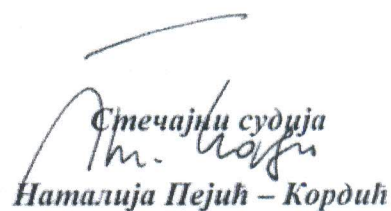 Стечајни судија
Наталија Пејић – Кордић